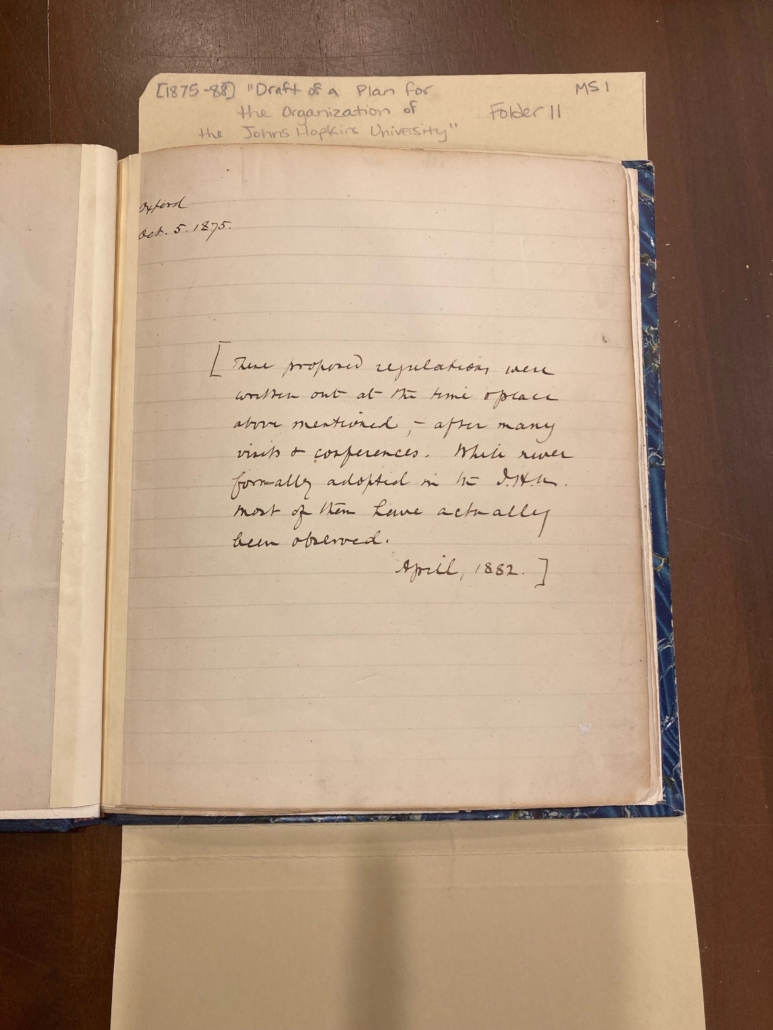 [1875-88] "Draft of a Plan for
the Organization of
the Johns Hopkins University"
Folder 11
MS 1
Oxford
Oct. 5. 1875.
[These proposed regulations were
written out at the time & place
above mentioned, – after many
visits & conferences. While never
formally adopted in the J.H.U.
most of them have actually
been observed.
April, 1882.]